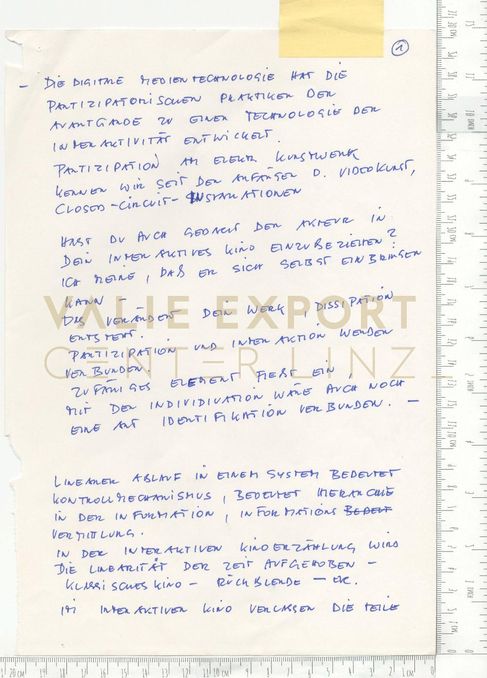 1
– DIE DIGITALE MEDIENTECHNOLOGIE HAT DIE
PARTIZIPATORISCHEN PRAKTIKEN DER
AVANTGARDE ZU EINER TECHNOLOGIE DER
INTERAKTIVITÄT ENTWICKELT.
PARTIZIPATION AM ELEKTR KUNSTWERK
KENNEN WIR SEIT DEN ANFÄNGEN D. VIDEOKUNST,
CLOSED-CIRCUIT-INSTALLATIONEN
HAST DU AUCH GEDACHT DER AKTEUR IN
DEIN INTERAKTIVES KINO EINZUBEZIEHEN?
ICH MEINE, DAß ER SICH SELBST EINBRINGEN
KANN!
DAS VERÄNDERT DEIN WERK, DISSIPATION
ENTSTEHT.
PARTIZIPATION UND INTERAKTION WERDEN
VERBUNDEN,
ZUFÄLLIGES ELEMENT FLIEßT EIN,
MIT DER INDIVIDUATION WÄRE AUCH NOCH
EINE ART IDENTIFIKATION VERBUNDEN. –
LINEARER ABLAUF IN EINEM SYSTEM BEDEUTET
KONTROLLMECHANISMUS, BEDEUTET HIERARCHIE
IN DER INFORMATION, INFORMATIONS BEDEUT
VERMITTLUNG.
IN DER INTERAKTIVEN KINOERZÄHLUNG WIRD
DIE LINEARITÄT DER ZEIT AUFGEHOBEN –
KLASSISCHES KINO – RÜCKBLENDE – ETC.
IM INTERAKTIVEN KINO VERLASSEN DIE TEILE
VALIE EXPORT
CENTER LINZ_